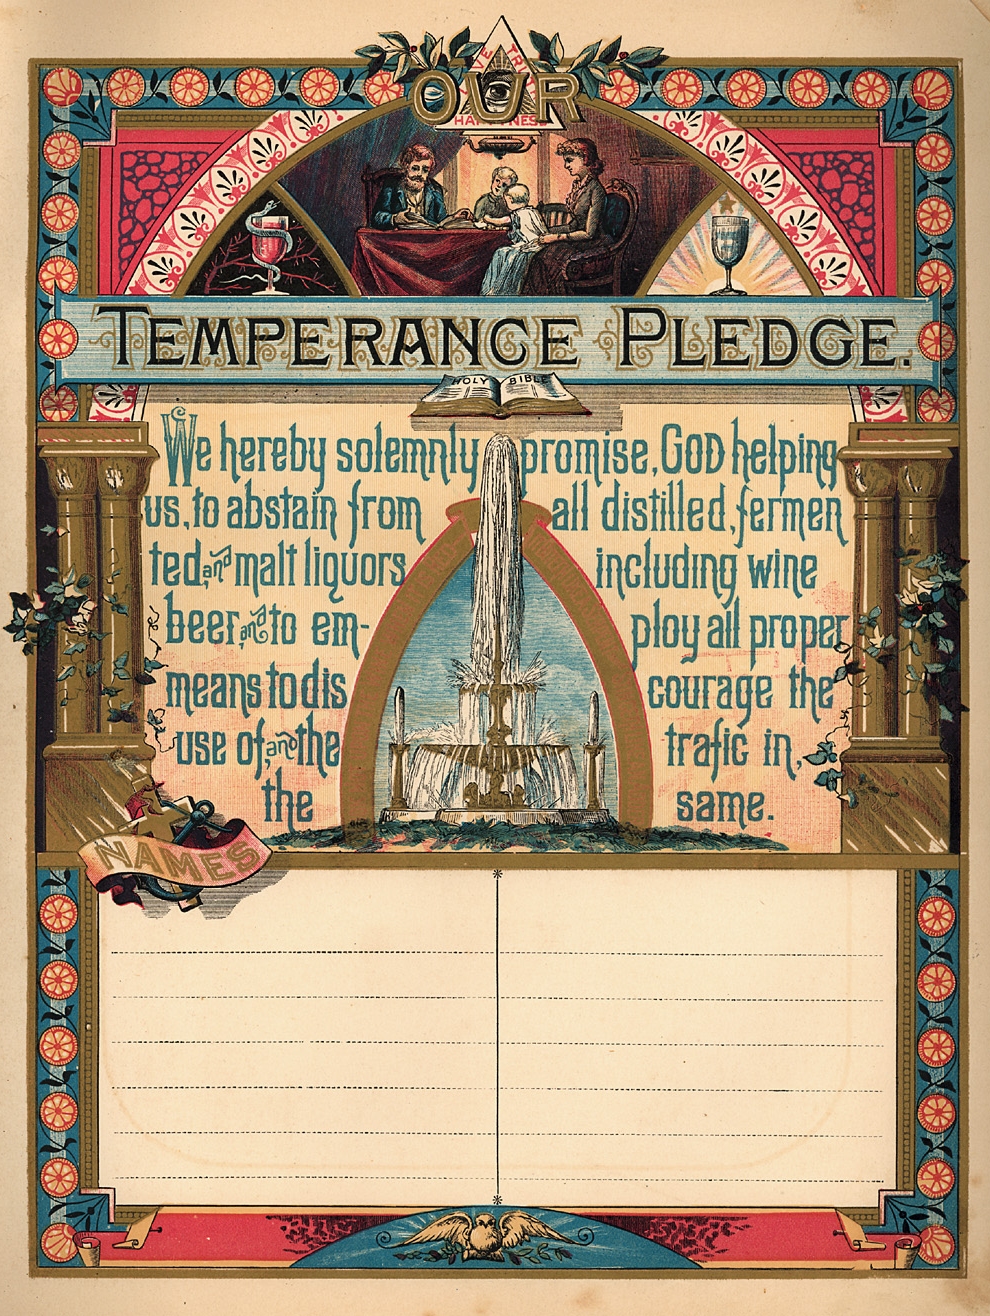 OUR
TEMPERANCE PLEDGE.
HOLY BIBLE
We hereby solemnly promise, GOD helping
us, to abstain from all distilled, fermen
ted, and malt liquors including wine
beer, and to em- ploy all proper
means to dis courage the
use of, and the trafic in,
the same.
NAMES